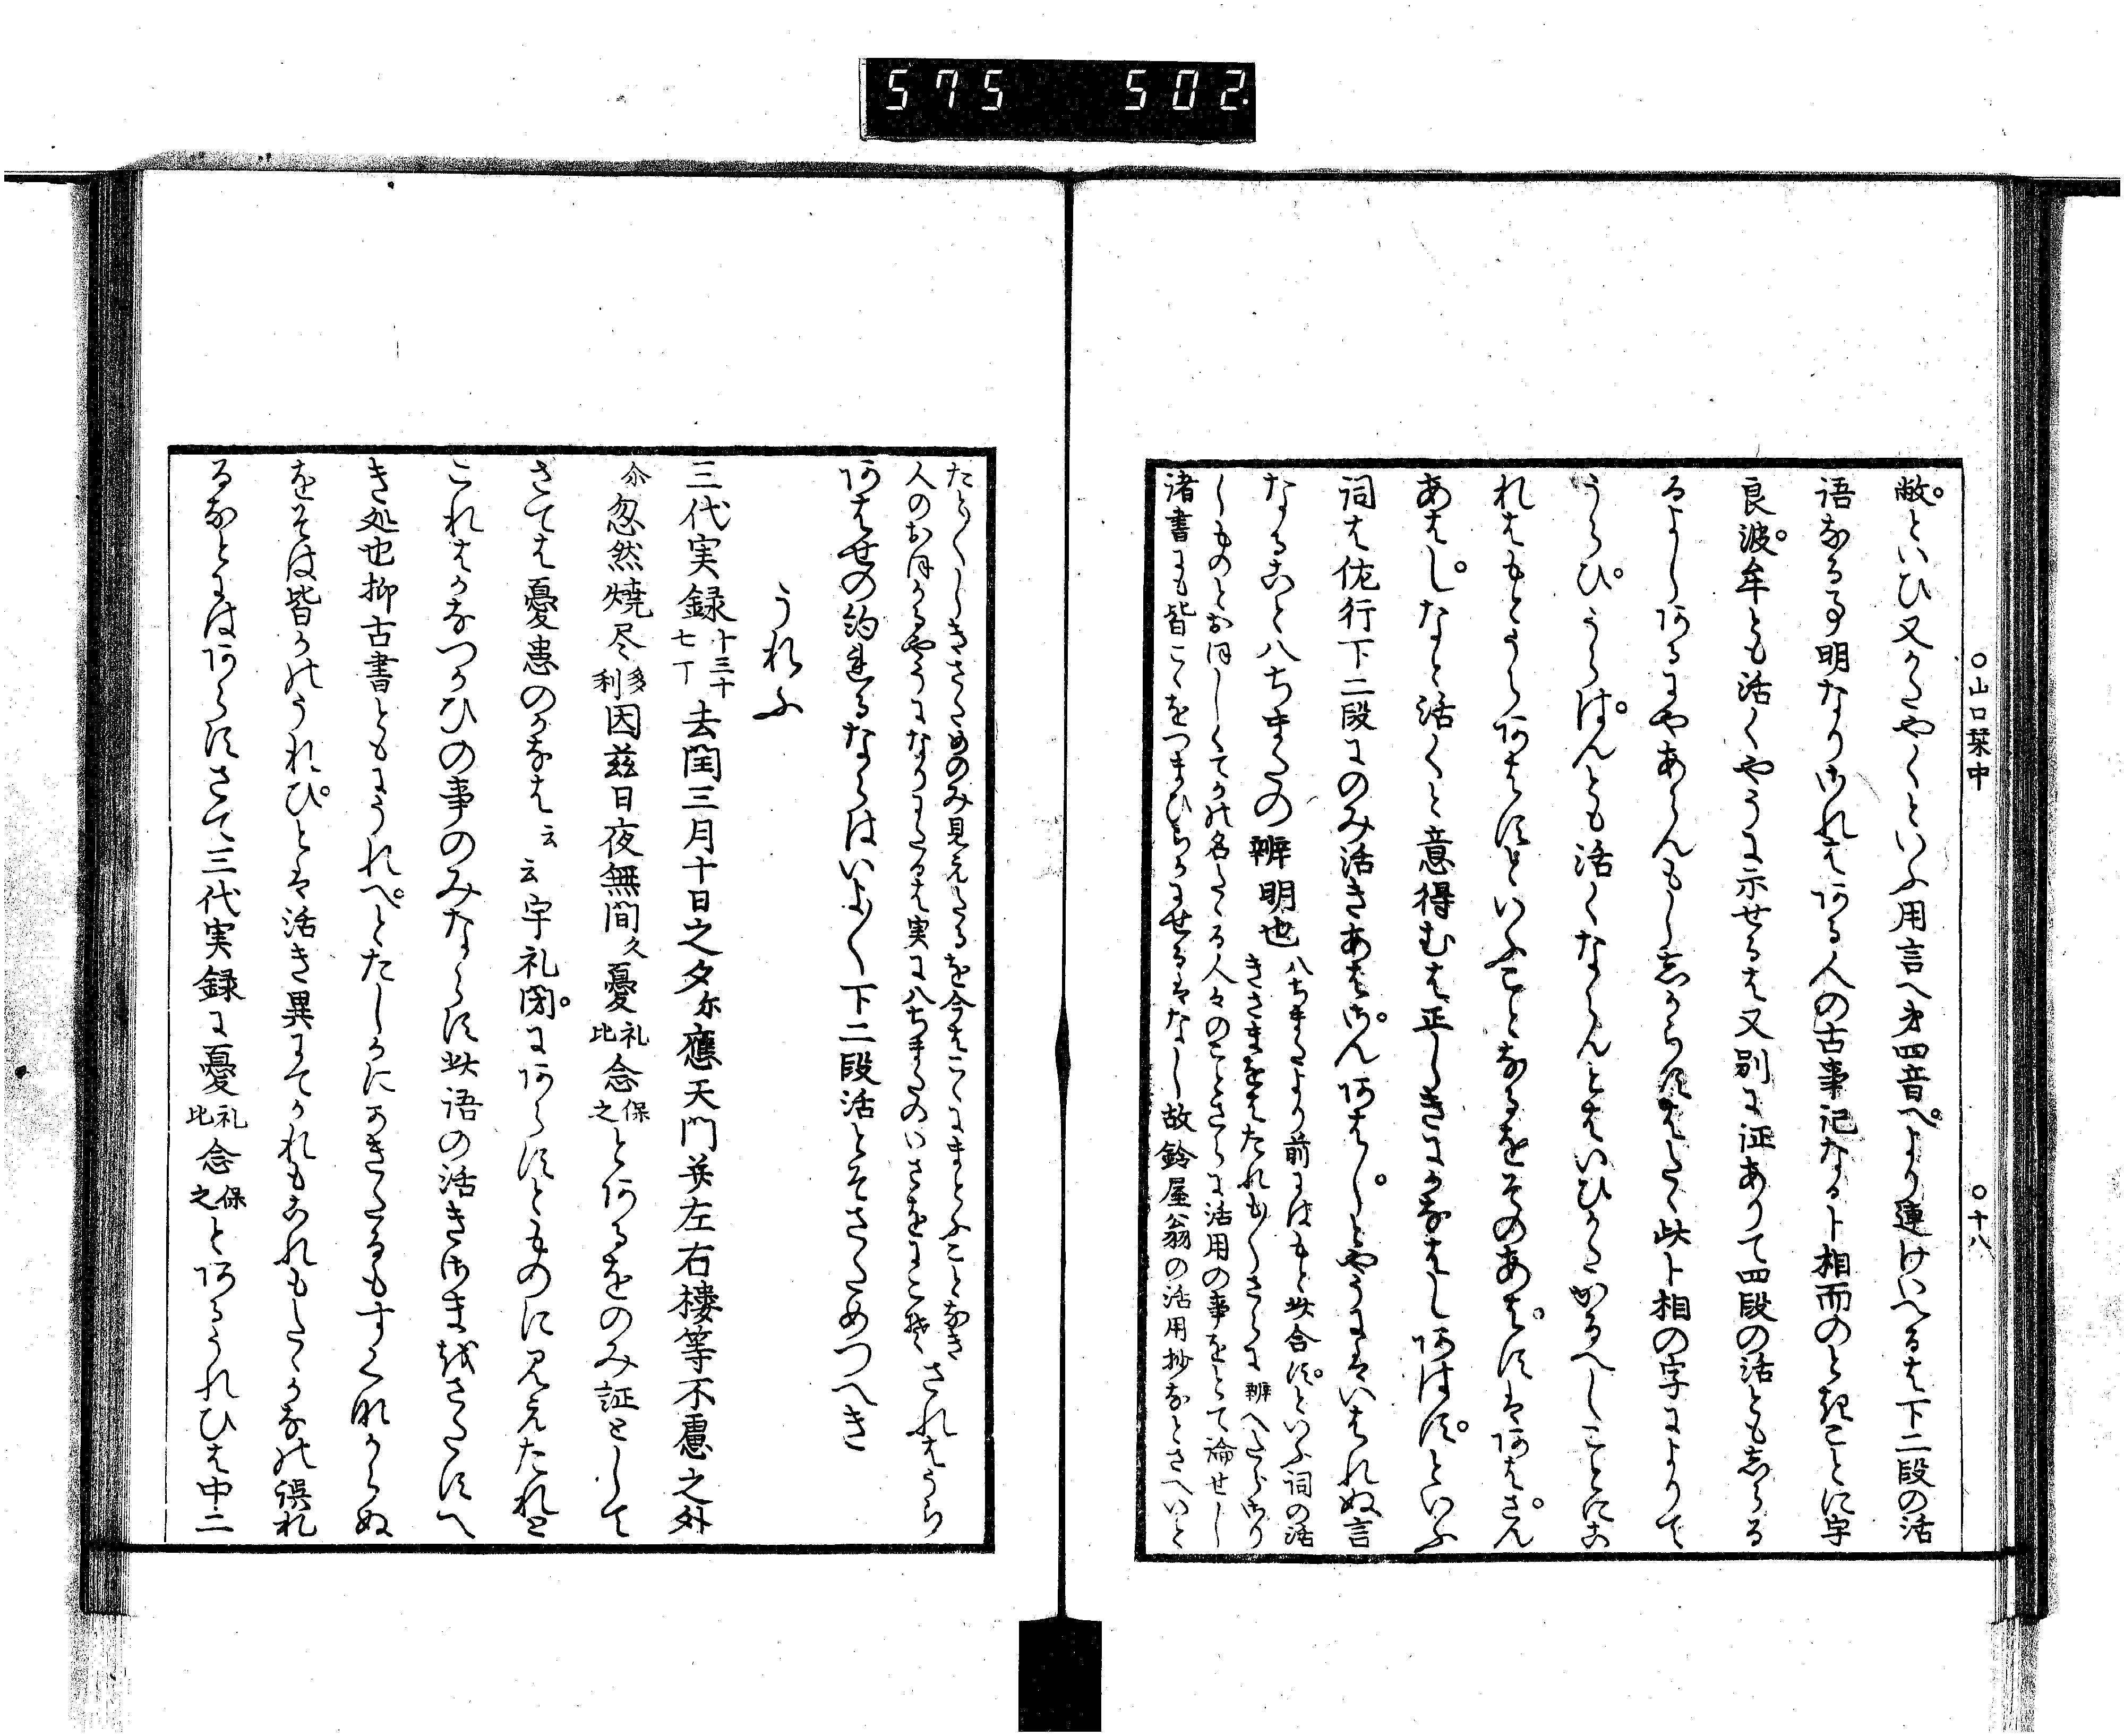 575 502.
○山口栞中 ○十八
敝といひ又かくやくといふ用言へ第四音へより連けいへるは下二段の活
語なる事明なりされはある人の古事記なる卜相而のときことに宇
良波牟とも活くやうに示せるは又別に証ありて四段の活とも志るる
るよしあるにやあらんもし志からすはたゝ此卜相の字によりて
うらひうらはんとも活くならんとはいひかたかるへしことにこ
れはもとうらあはすといふことなるをそのあはすはあはさん
あはしなと活くと意得むは正しきにかなはしあはすといふ
詞は佐行下二段にのみ活きあはさんあはしとやうにはいはれぬ言
なること八ちまたの辨明也
八ちまたより前にはもと此合すといふ詞の活
きさまをはたれも〳〵さらに辨へたらさり
しものとおほしくてかの名たゝる人々のことさらに活用の事をとて論せし
諸書にも皆こゝをつまひらかにせるはなし故鈴屋翁の活用抄なとさへいと
たと〳〵しきさためのみ見えたるを今はこゝにまとふことなき
人のおほかるやうになりにたるは実に八ちまたのいさをにこそ
されはうら
あはせの約れるならはいよ〳〵下二段活とそさためつへき
うれふ
三代実録十三十七丁去閏三月十日之夕尓應天門并左右樓等不慮之外
尓忽然焼尽多利因茲日夜無間久憂礼比念保之とあるをのみ証として
さては憂患のかなは云云宇礼閇にあらすとものに見えたれと
これはかなつかひの事のみならす此語の活きさま越さたすへ
き処也抑古書ともにうれへとたしかにかきたるもすくなからぬ
をそは皆かのうれひとは活き異にてかれもこれもたゝかなの誤れ
るなとにはあらすさて三代実録に憂礼比念保之とあるうれひは中二